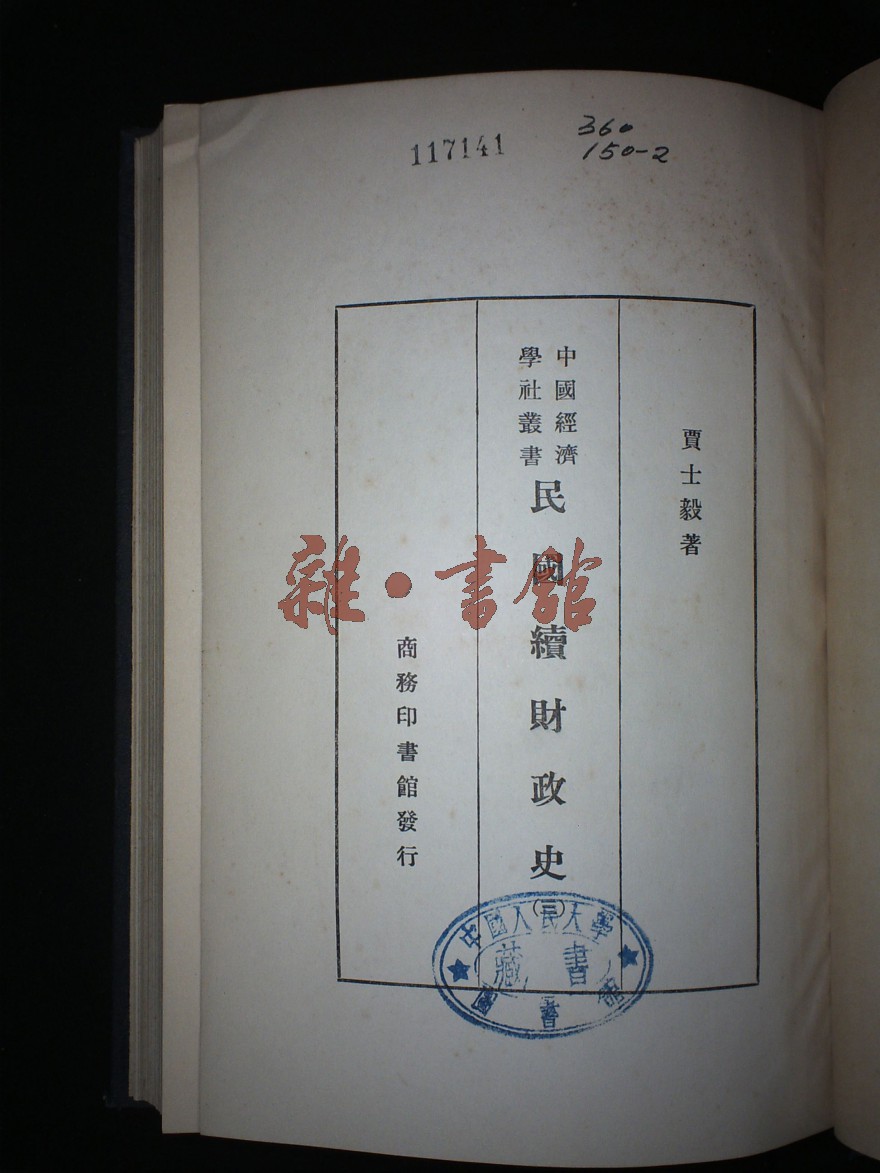 117141
360
150-2
賈士毅著
中國經濟
學社叢書
民國續財政史
(三)
商務印書館發行
雜·書館
中國人民大學
藏書
圖書館